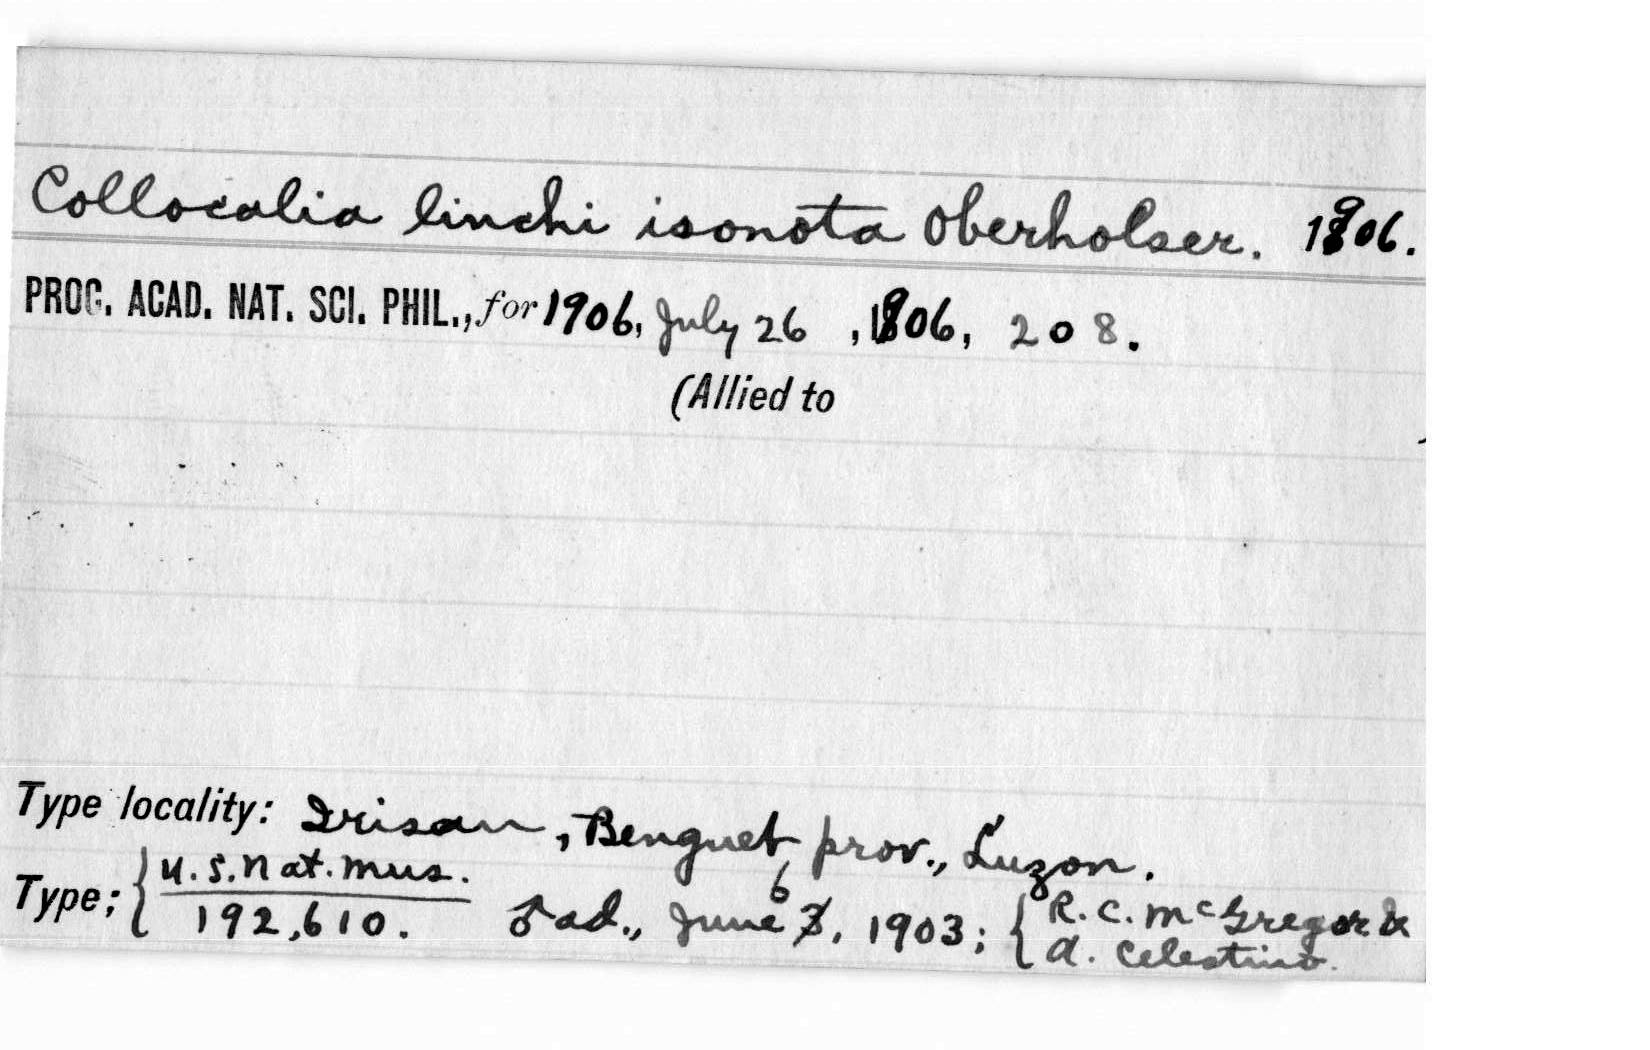 Collocalia linchi isonota Oberholser. 1906.
PROC. ACAD. NAT. SCI. PHIL., for 1906, July 26, 1906, 208.
(Allied to
Type locality: Irisan, Benguet prov., Luzon.
Type; { U.S. Nat. Mus. 192,610. ♂ ad., June 6, 1903; { R. C. McGregor & A. Celestino.